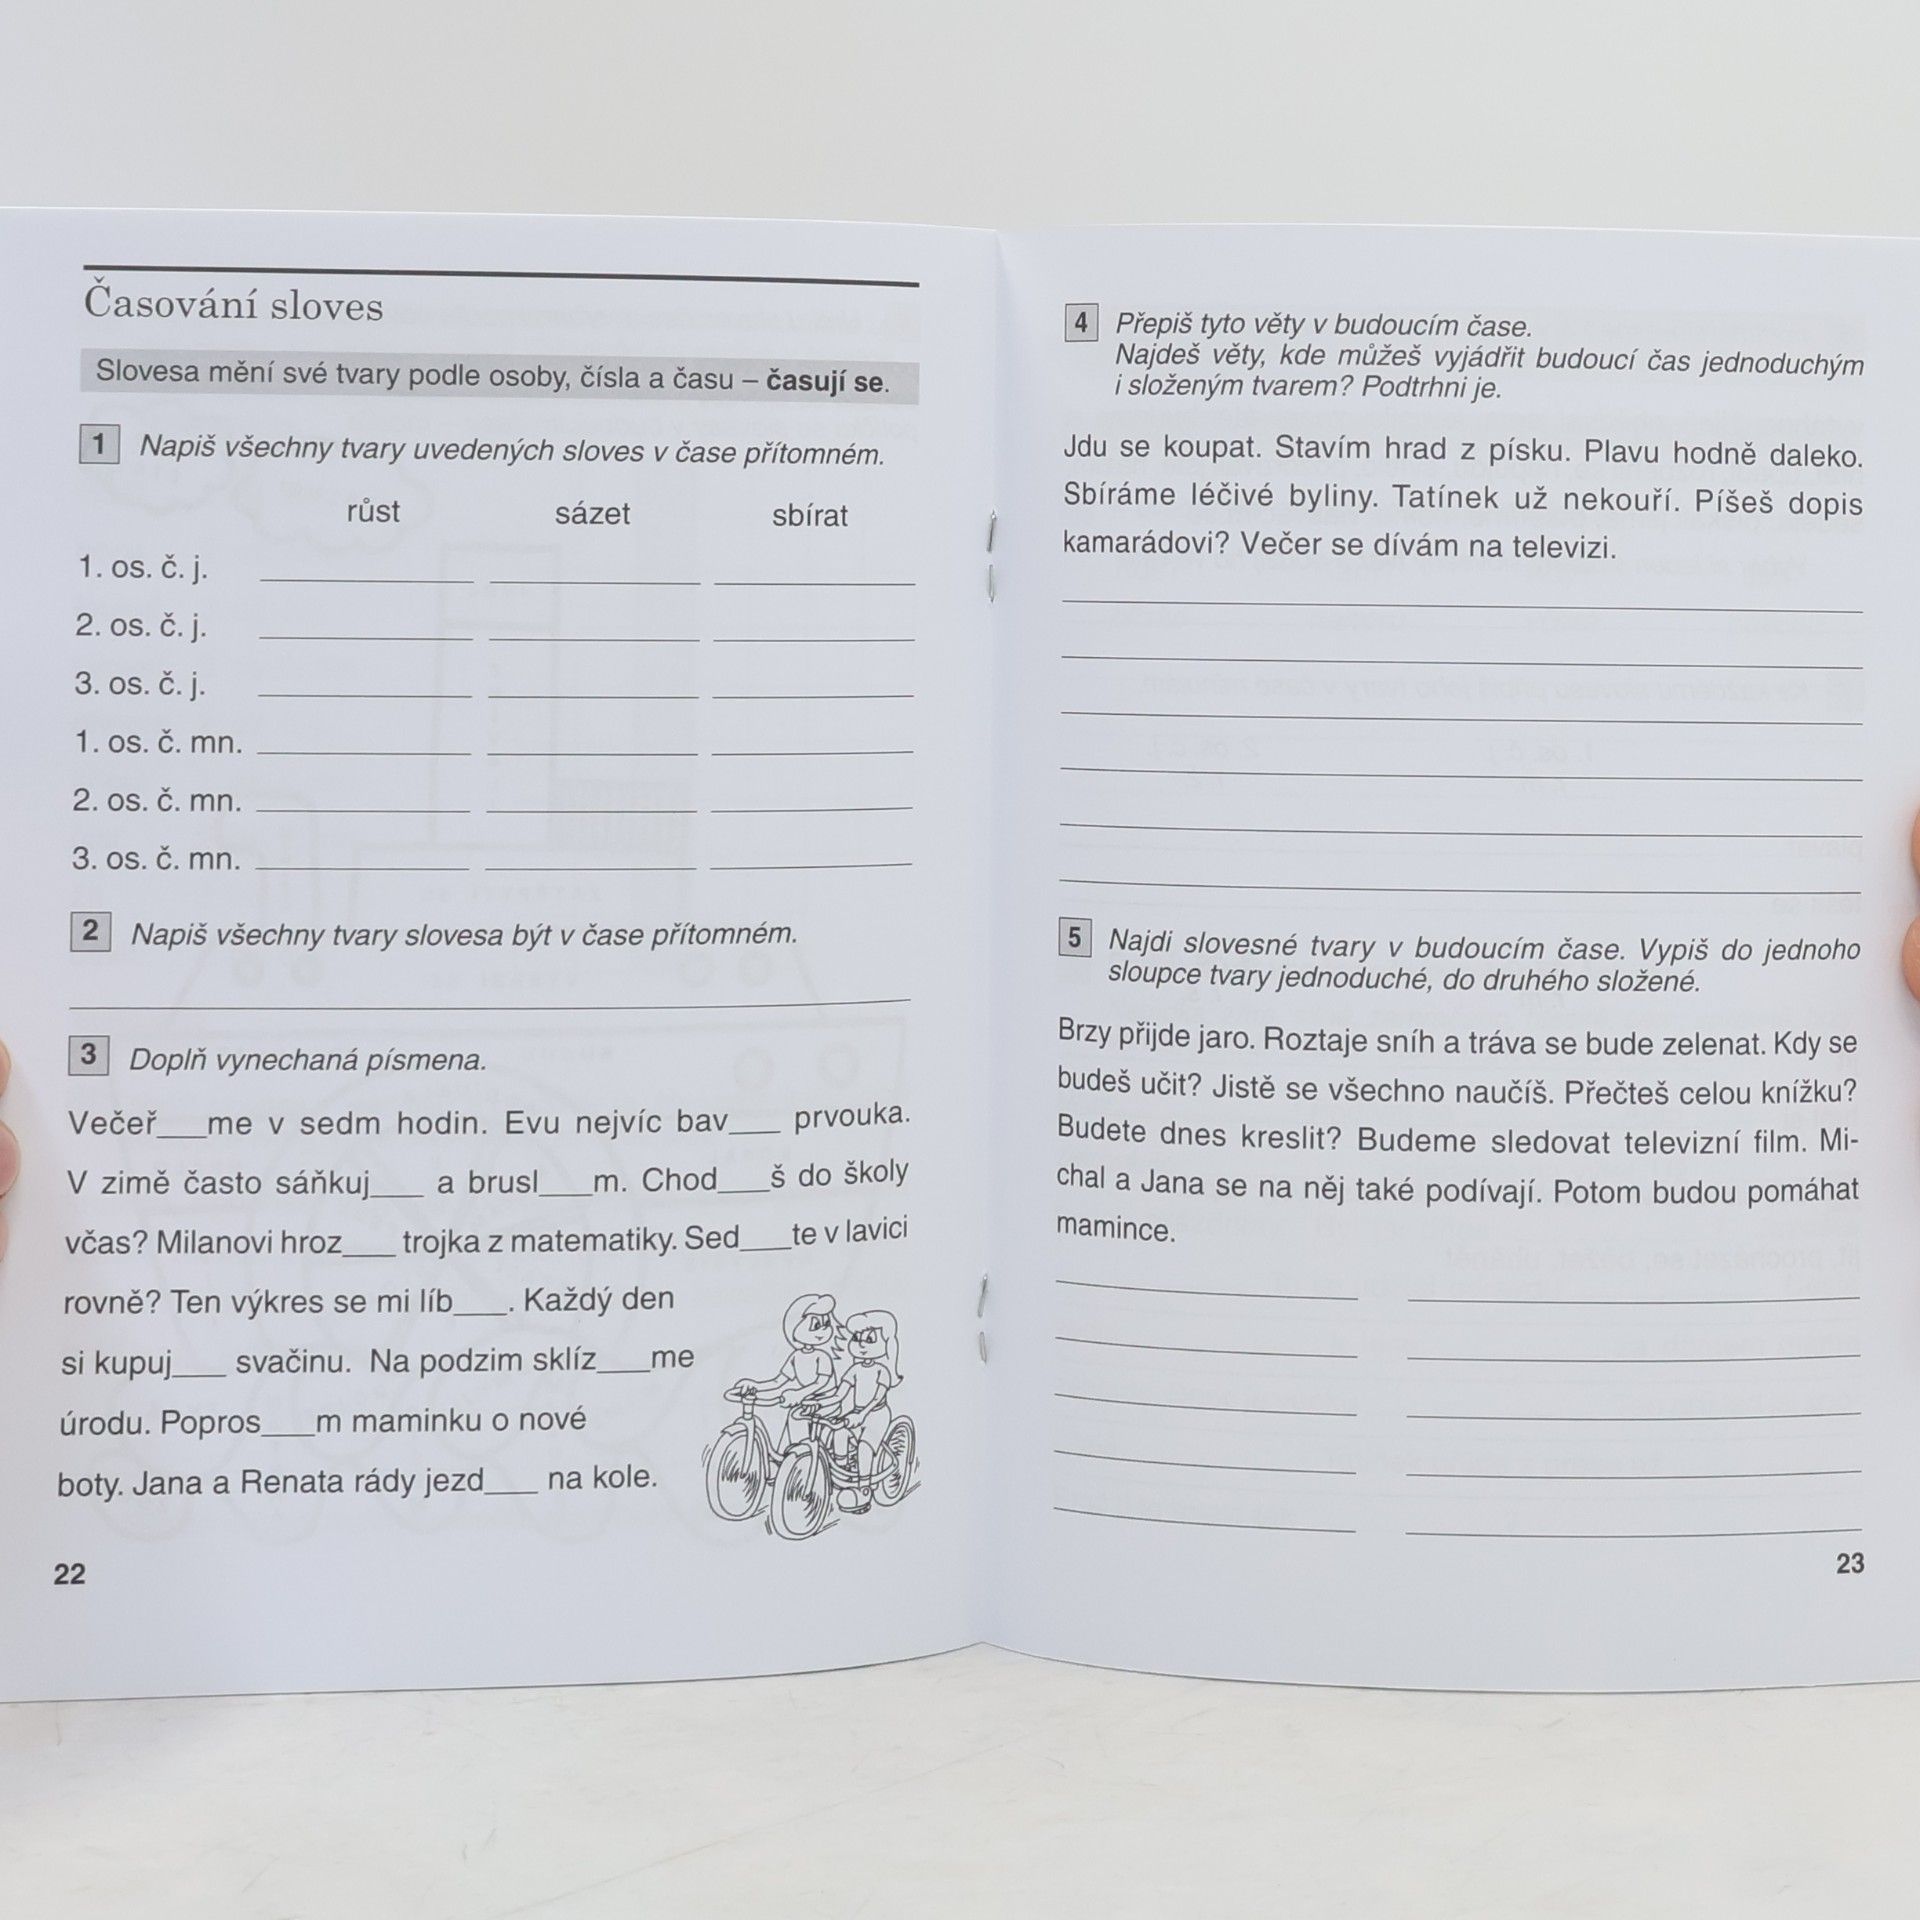 Časování sloves
Slovesa mění své tvary podle osoby, čísla a času – časují se.
1 Napiš všechny tvary uvedených sloves v čase přítomném.
růst sázet sbírat
1. os. č. j.
2. os. č. j.
3. os. č. j.
1. os. č. mn.
2. os. č. mn.
3. os. č. mn.
2 Napiš všechny tvary slovesa být v čase přítomném.
3 Doplň vynechaná písmena.
Večeř___me v sedm hodin. Evu nejvíc bav___ prvouka.
V zimě často sáňkuj___ a brusl___m. Chod___š do školy
včas? Milanovi hroz___ trojka z matematiky. Sed___te v lavici
rovně? Ten výkres se mi líb___. Každý den
si kupuj___ svačinu. Na podzim sklíz___me
úrodu. Popros___m maminku o nové
boty. Jana a Renata rády jezd___ na kole.
22
4 Přepiš tyto věty v budoucím čase.
Najdeš věty, kde můžeš vyjádřit budoucí čas jednoduchým
i složeným tvarem? Podtrhni je.
Jdu se koupat. Stavím hrad z písku. Plavu hodně daleko.
Sbíráme léčivé byliny. Tatínek už nekouří. Píšeš dopis
kamarádovi? Večer se dívám na televizi.
5 Najdi slovesné tvary v budoucím čase. Vypiš do jednoho
sloupce tvary jednoduché, do druhého složené.
Brzy přijde jaro. Roztaje sníh a tráva se bude zelenat. Kdy se
budeš učit? Jistě se všechno naučíš. Přečteš celou knížku?
Budete dnes kreslit? Budeme sledovat televizní film. Mi-
chal a Jana se na něj také podívají. Potom budou pomáhat
mamince.
23